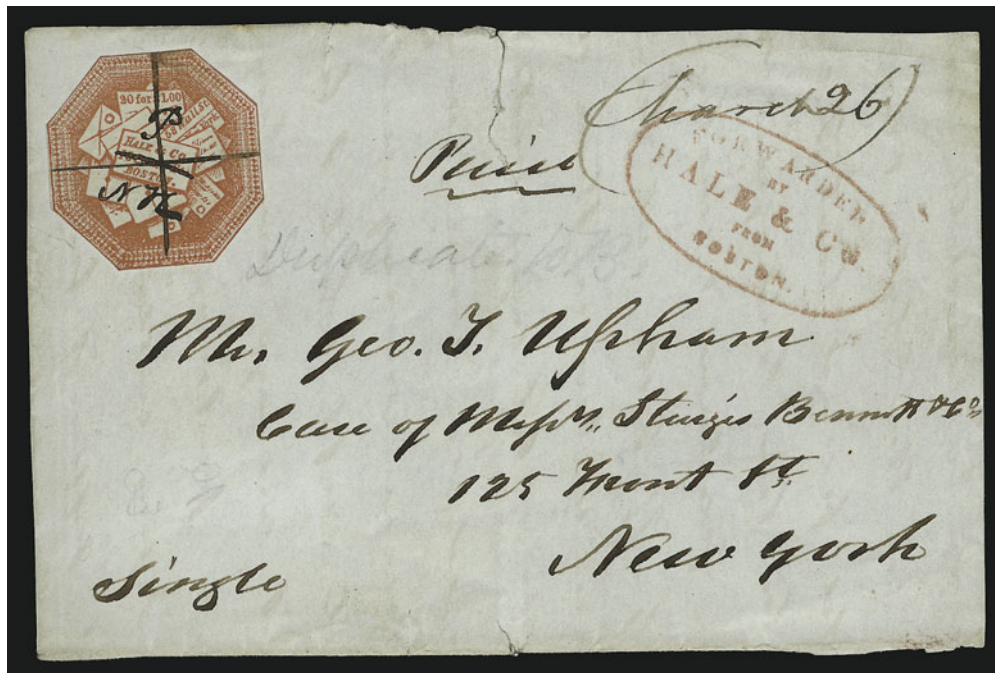 20 for $1.00
HALE & CO.
BOSTON.
(March 26)
Paid
FORWARDED
BY
HALE & Co.
FROM
BOSTON.
Duplicate
Mr. Geo. T. Upham
Care of Messrs. Sturgis Bennett & Co
125 Front St.
New York
Single